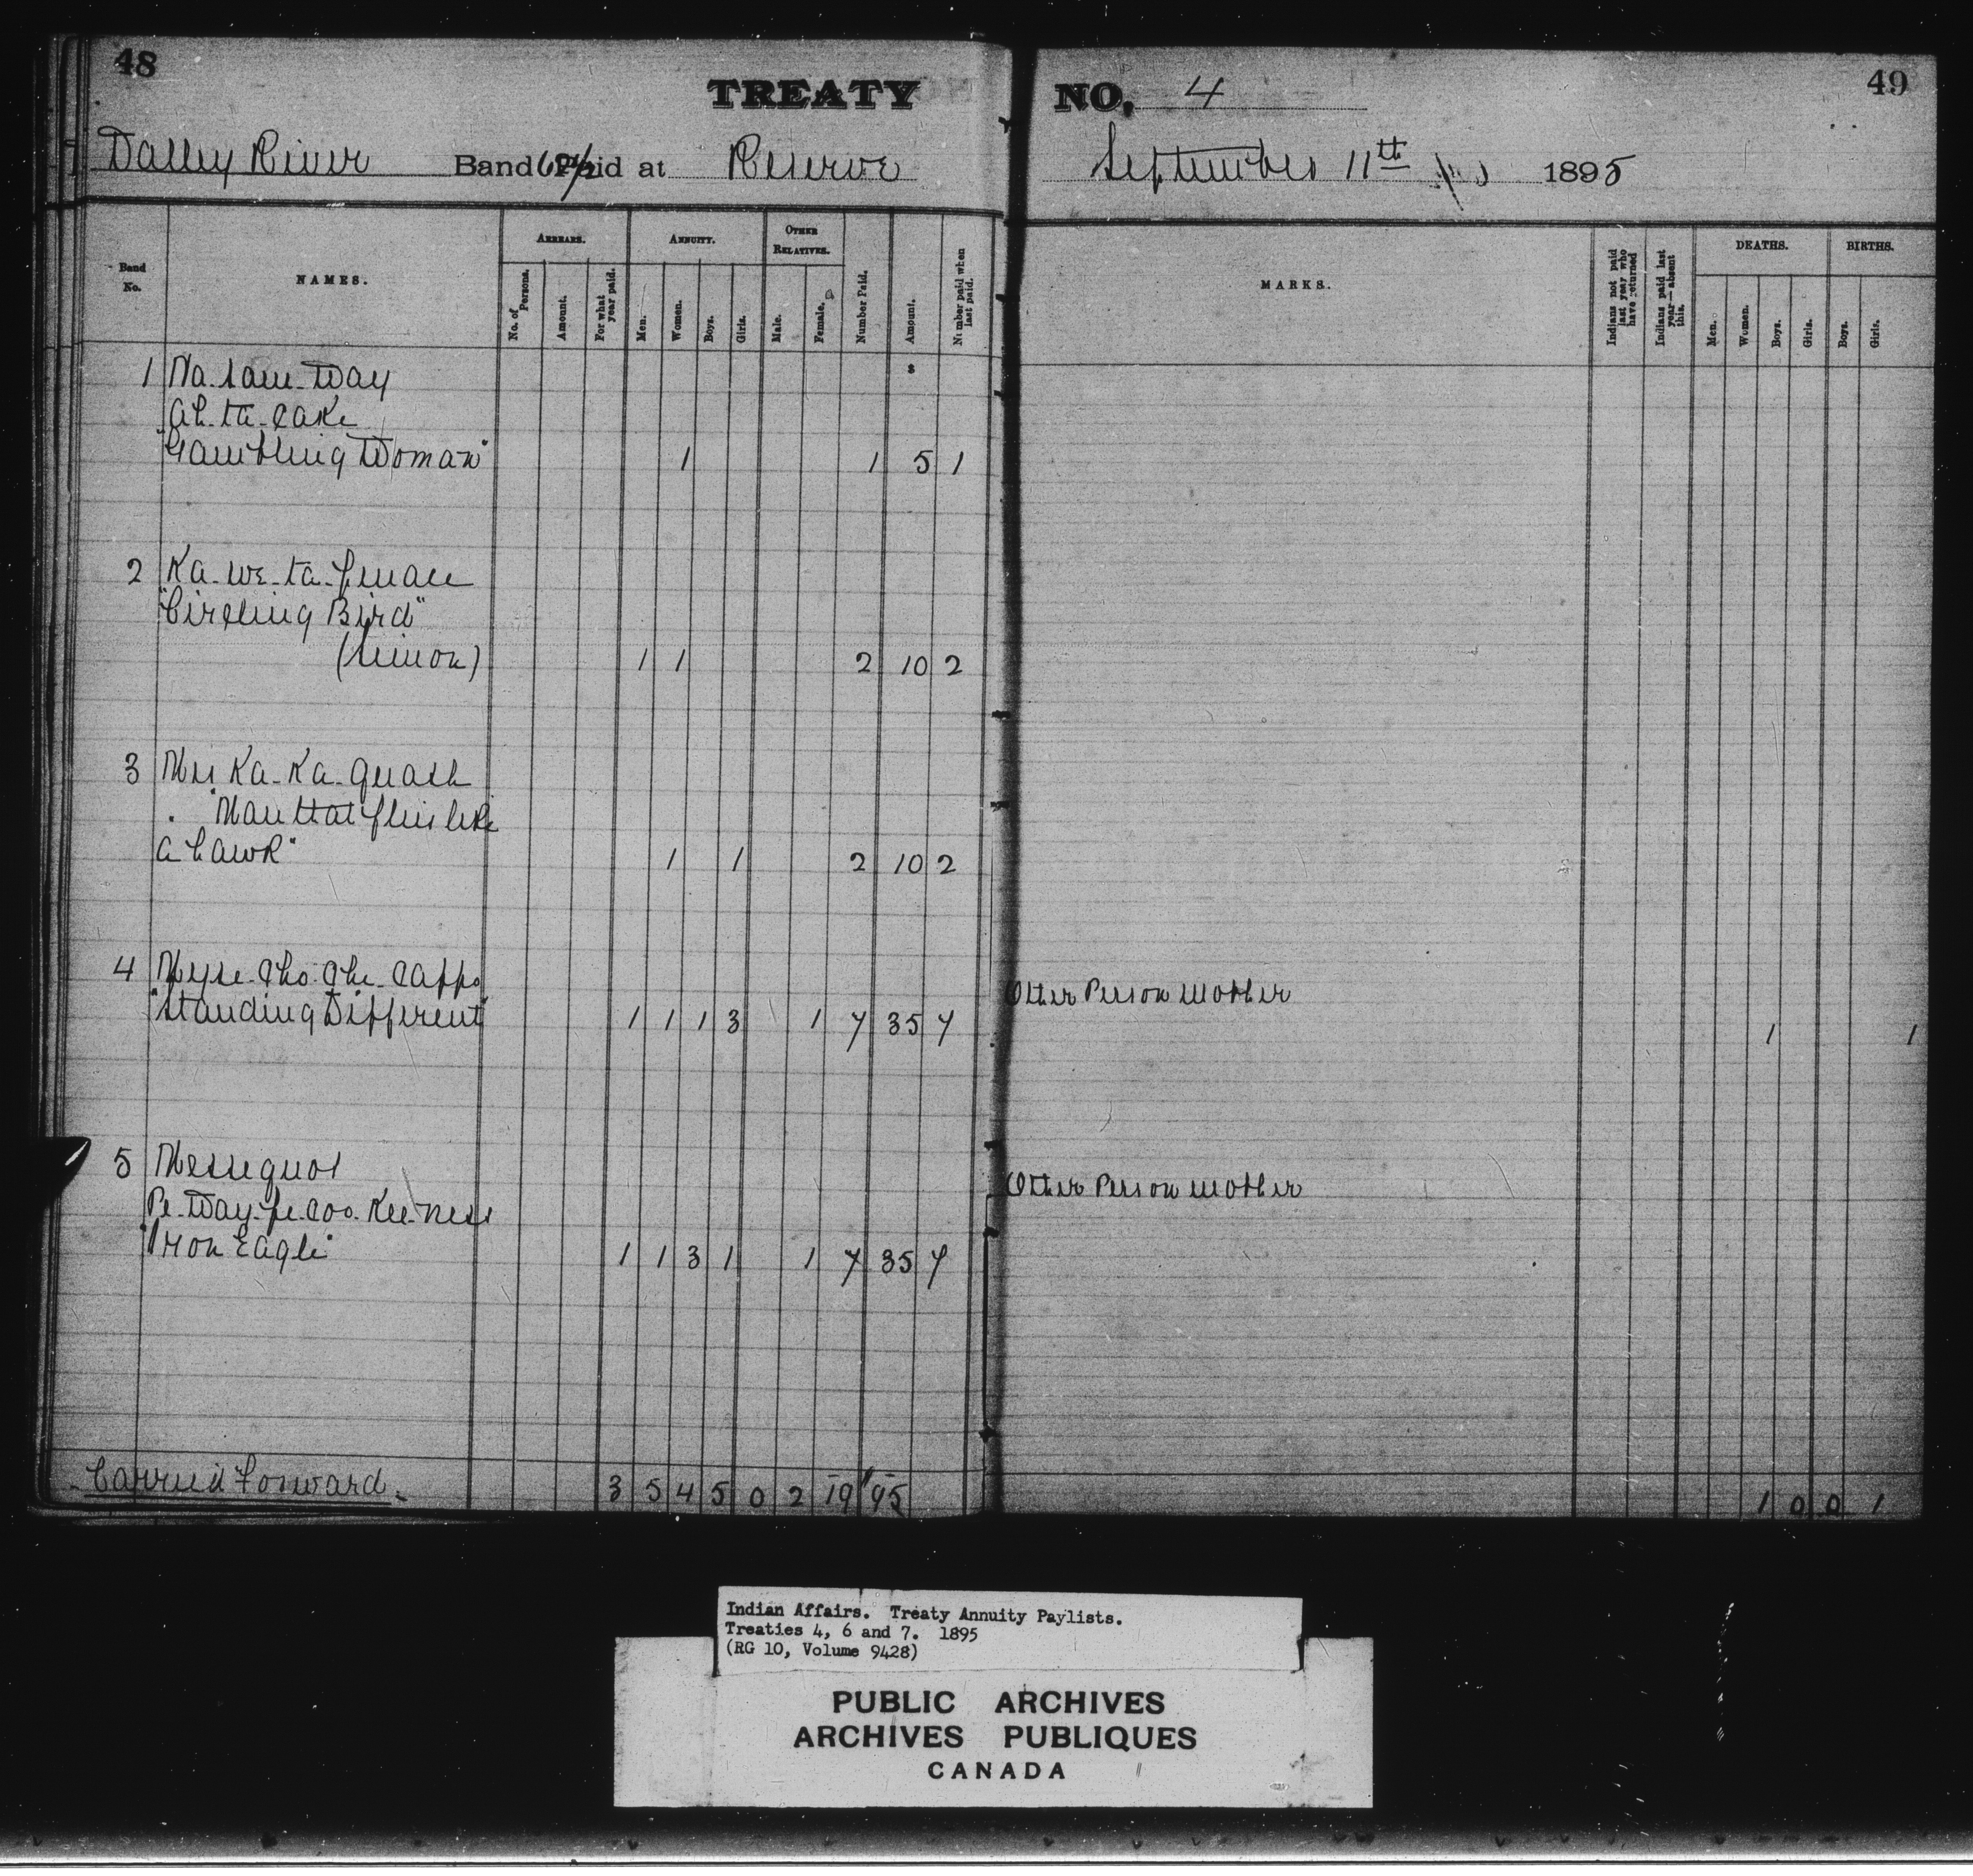 48
TREATY NO. 4
49
Valley River Band 62½ Paid at Reserve September 11th 1895
Band No.
NAMES.
ARREARS.
No. of Persons.
Amount.
For what year paid.
ANNUITY.
Men.
Women.
Boys.
Girls.
OTHER RELATIVES.
Male.
Female.
Number Paid.
Amount.
Number paid when last paid.
MARKS.
Indians not paid last year who have returned
Indians paid last year—absent this.
DEATHS.
Men.
Women.
Boys.
Girls.
BIRTHS.
Boys.
Girls.
1 Na-saw-Way
ah-ta-cake
"Gambling Woman" 1 1 5 1
2 Ka-we-ta-penace
"Circling Bird"
(Simon) 1 1 2 10 2
3 Mis Ka-Ka-quash
"Man that flies like
a hawk" 1 1 2 10 2
4 Myse-cho-che-cappo Other Person Mother
"Standing Different" 1 1 1 3 1 7 35 7 1 1
5 Messequot Other Person Mother
Pe-Way-pe-coo-Kee-ness
"Iron Eagle" 1 1 3 1 1 7 35 7
Carried Forward. 3 5 4 5 0 2 19 95 1 0 0 1
Indian Affairs. Treaty Annuity Paylists.
Treaties 4, 6 and 7. 1895
(RG 10, Volume 9428)
PUBLIC ARCHIVES
ARCHIVES PUBLIQUES
CANADA